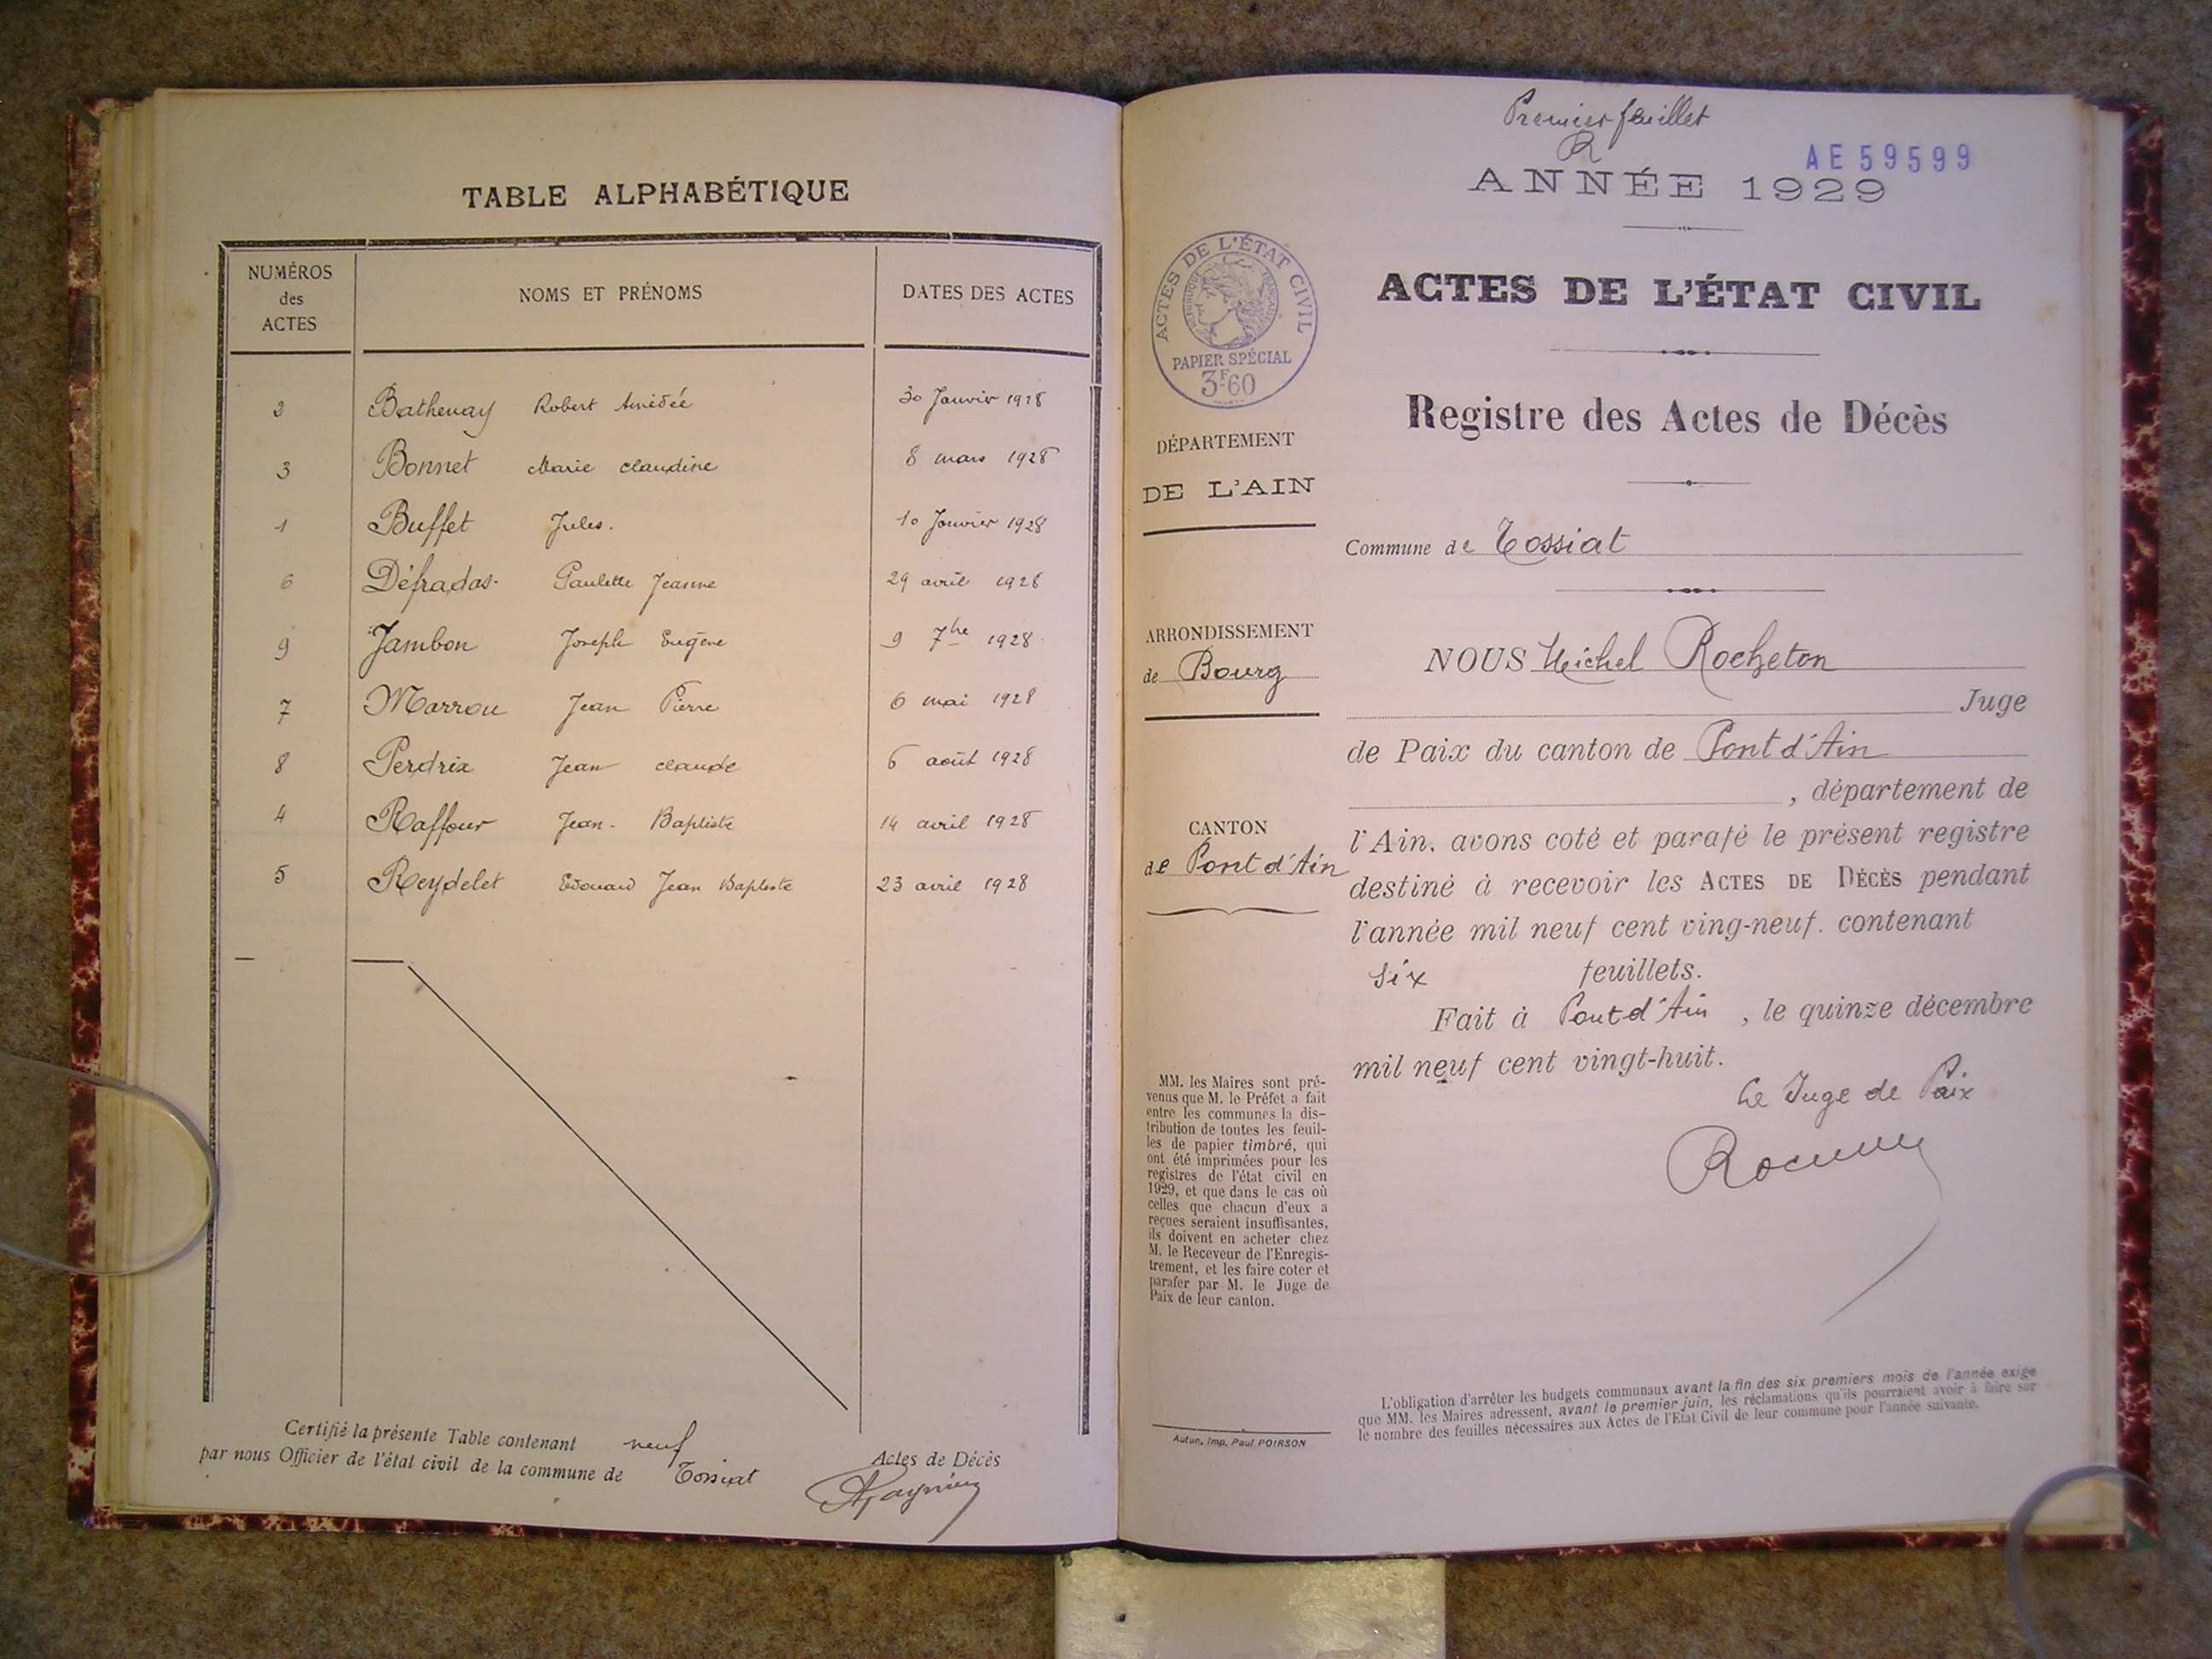 TABLE ALPHABÉTIQUE
NUMÉROS des ACTES NOMS ET PRÉNOMS DATES DES ACTES
2 Bathenay Robert Amédée 30 Janvier 1928
3 Bonnet Marie claudine 8 mars 1928
1 Buffet Jules. 10 Janvier 1928
6 Défradas. Paulette Jeanne 29 avril 1928
9 Jambon Joseph Eugène 9 7bre 1928.
7 Marrou Jean Pierre 6 mai 1928
8 Perdrix Jean claude 6 août 1928
4 Raffour Jean-Baptiste 14 avril 1928
5 Reydelet Edouard Jean Baptiste 23 avril 1928
Certifié la présente Table contenant neuf Actes de Décès
par nous Officier de l'état civil de la commune de Tossiat
Premier feuillet
R
AE59599
ANNÉE 1929
ACTES DE L'ÉTAT CIVIL
RÉPUBLIQUE FRANÇAISE
PAPIER SPÉCIAL
3F.60
ACTES DE L'ÉTAT CIVIL
Registre des Actes de Décès
DÉPARTEMENT
DE L'AIN
Commune de Tossiat
ARRONDISSEMENT
de Bourg
CANTON
de Pont d'Ain
NOUS Michel Rocheton
Juge
de Paix du canton de Pont d'Ain
, département de
l'Ain. avons coté et parafé le présent registre
destiné à recevoir les ACTES DE DÉCÈS pendant
l'année mil neuf cent ving-neuf. contenant
six feuillets.
Fait à Pont d'Ain, le quinze décembre
mil neuf cent vingt-huit.
Le Juge de Paix
MM. les Maires sont pré-
venus que M. le Préfet a fait
entre les communes la dis-
tribution de toutes les feuil-
les de papier timbré, qui
ont été imprimées pour les
registres de l'état civil en
1929, et que dans le cas où
celles que chacun d'eux a
reçues seraient insuffisantes,
ils doivent en acheter chez
M. le Receveur de l'Enregis-
trement, et les faire coter et
parafer par M. le Juge de
Paix de leur canton.
Autun, Imp. Paul POIRSON
L'obligation d'arrêter les budgets communaux avant la fin des six premiers mois de l'année exige
que MM. les Maires adressent, avant le premier juin, les réclamations qu'ils pourraient avoir à faire sur
le nombre des feuilles nécessaires aux Actes de l'État Civil de leur commune pour l'année suivante.